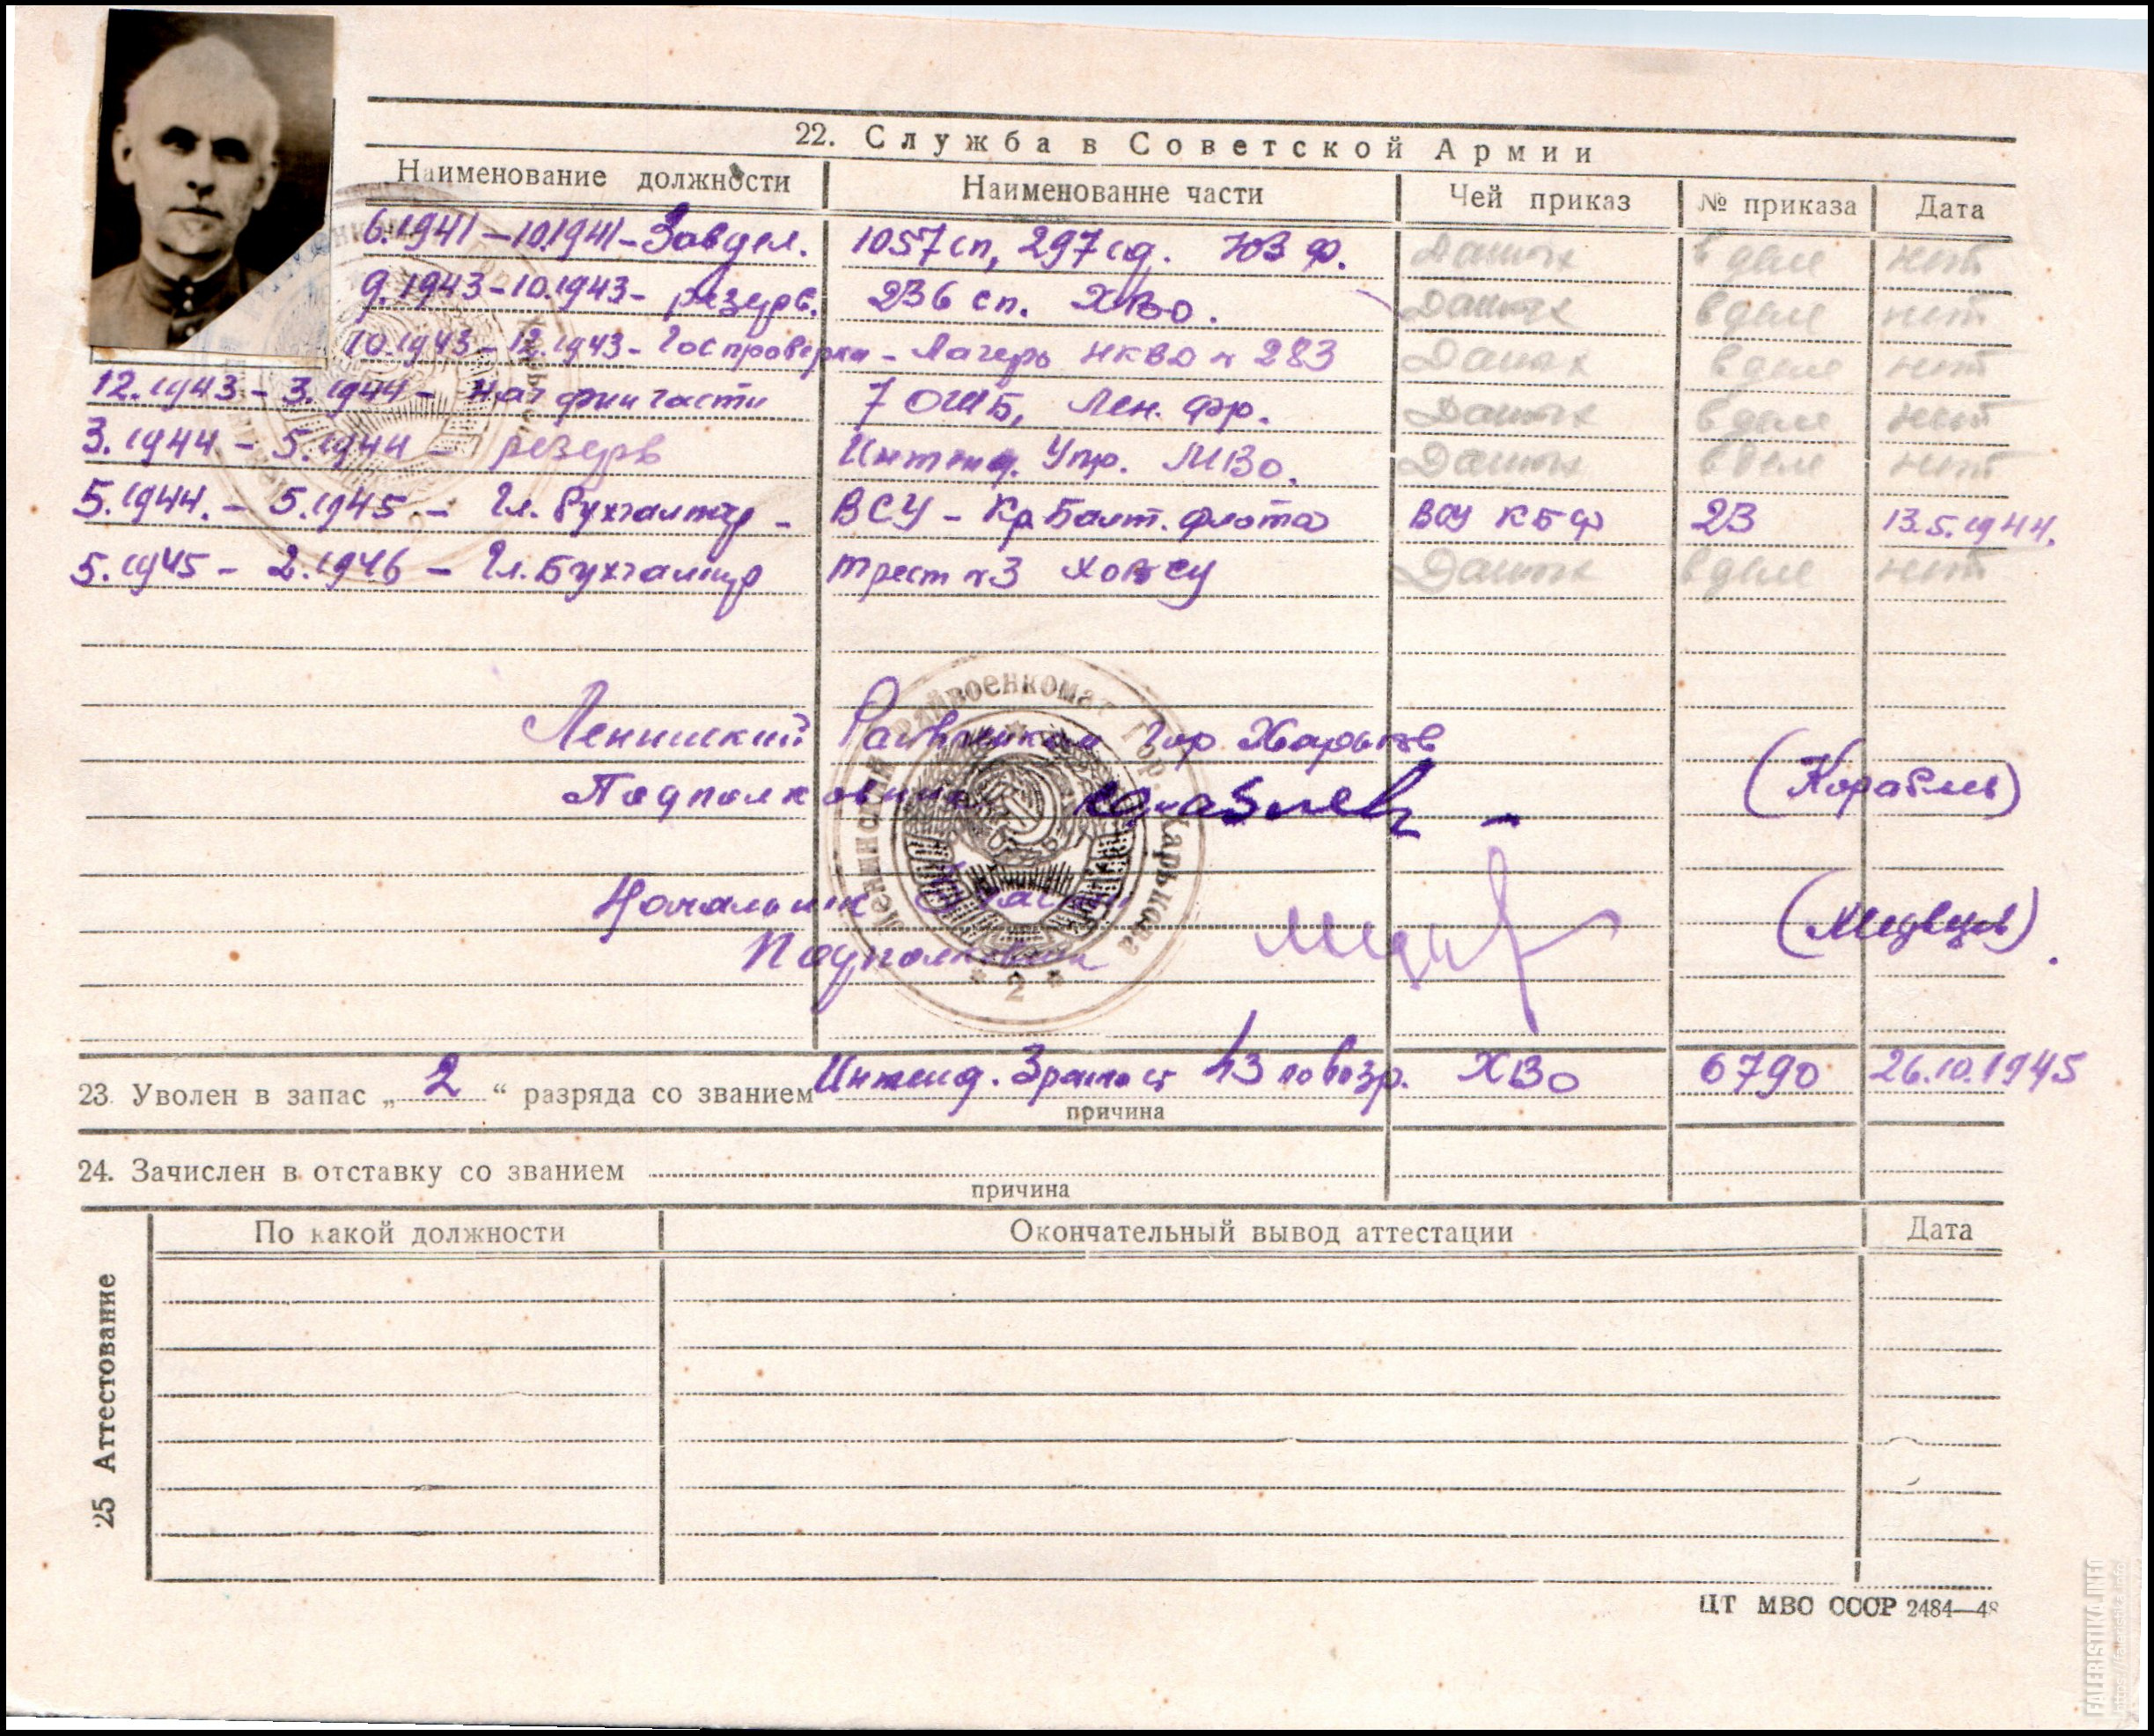 22. Служба в Советской Армии
Наименование должности Наименованне части Чей приказ № приказа Дата
6.1941-10.1941-Завдел. 1057 сп, 297 сд. ЮЗ Ф. Данных в деле нет
9.1943-10.1943- резерв. 236 сп. ХВО. Данных в деле нет
10.1943-12.1943- Госпроверка - Лагерь НКВД N 283 Данных в деле нет
12.1943-3.1944- Нач фин части 7 ОШБ, Лен. фр. Данных в деле нет
3.1944-5.1944- резерв Интенд. Упр. МВО. Данных в деле нет
5.1944.-5.1945-Гл. Бухгалтер- ВСУ-Кр. Балт. флота ВСУ КБФ 23 13.5.1944.
5.1945-2.1946-Гл. Бухгалтер трест N3 Данных в деле нет
Ленинский Райвоенком Гор Харьков
Подполковник (Кораблев)
Начальник 3 части
Подполковник (Медведев).
Ленинский райвоенкомат Гор. Харькова
* 2 *
23. Уволен в запас „ 2 “ разряда со званием Интенд. 3 ранга ст 43 по возр. ХВО 6790 26.10.1945
причина
24. Зачислен в отставку со званием
причина
25 Аттестование
По какой должности Окончательный вывод аттестации Дата
ЦТ МВС СССР 2484—48
FALERISTIKA.INFO